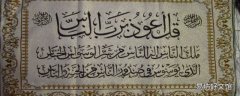 قل أعوذ برب الناس
ملك الناس إله الناس من شر الوسواس الخناس
الذي يوسوس في صدور الناس من الجنة والناس